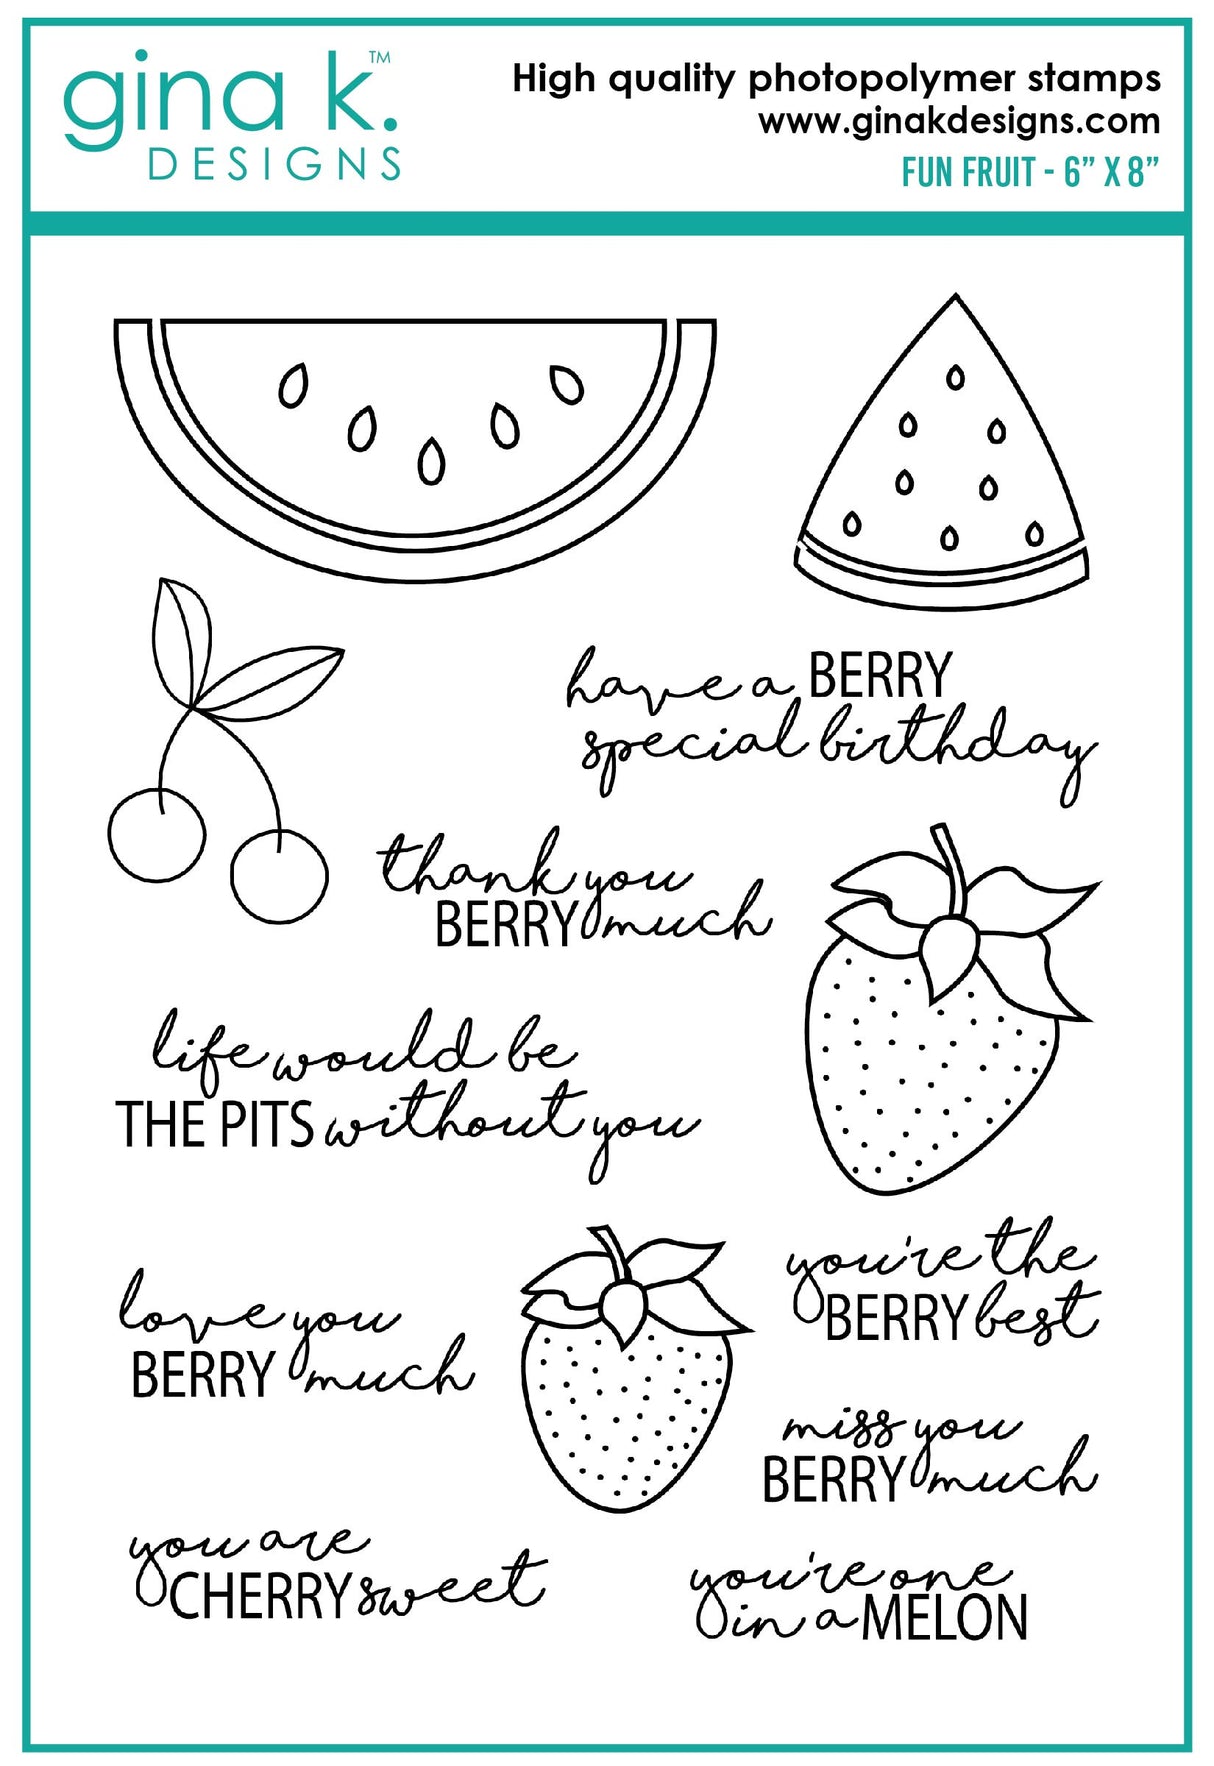 gina k.™
DESIGNS
High quality photopolymer stamps
www.ginakdesigns.com
FUN FRUIT - 6” X 8”
have a BERRY
special birthday
thank you
BERRY much
life would be
THE PITS without you
love you
BERRY much
you're the
BERRY best
miss you
BERRY much
you are
CHERRY sweet
you're one
in a MELON